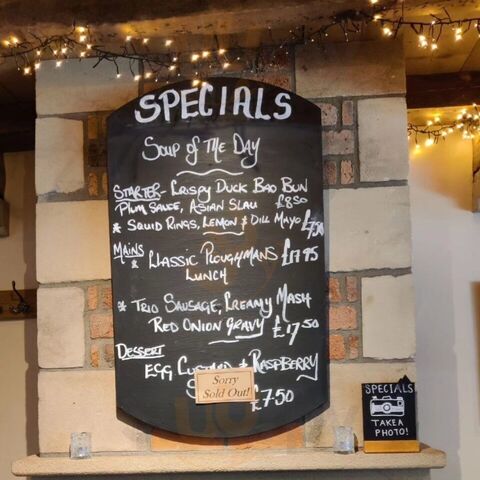 SPECIALS
SOUP OF THE DAY
STARTER - CRISPY DUCK BAO BUN
PLUM SAUCE, ASIAN SLAU £8.50
* SQUID RINGS, LEMON & DILL MAYO £7.50
MAINS
* CLASSIC PLOUGHMANS £17.95
LUNCH
* TRIO SAUSAGE, CREAMY MASH
RED ONION GRAVY £17.50
DESSERT
EGG CUSTARD & RASPBERRY
Sorry
Sold Out!
£7.50
SPECIALS
TAKE A
PHOTO!